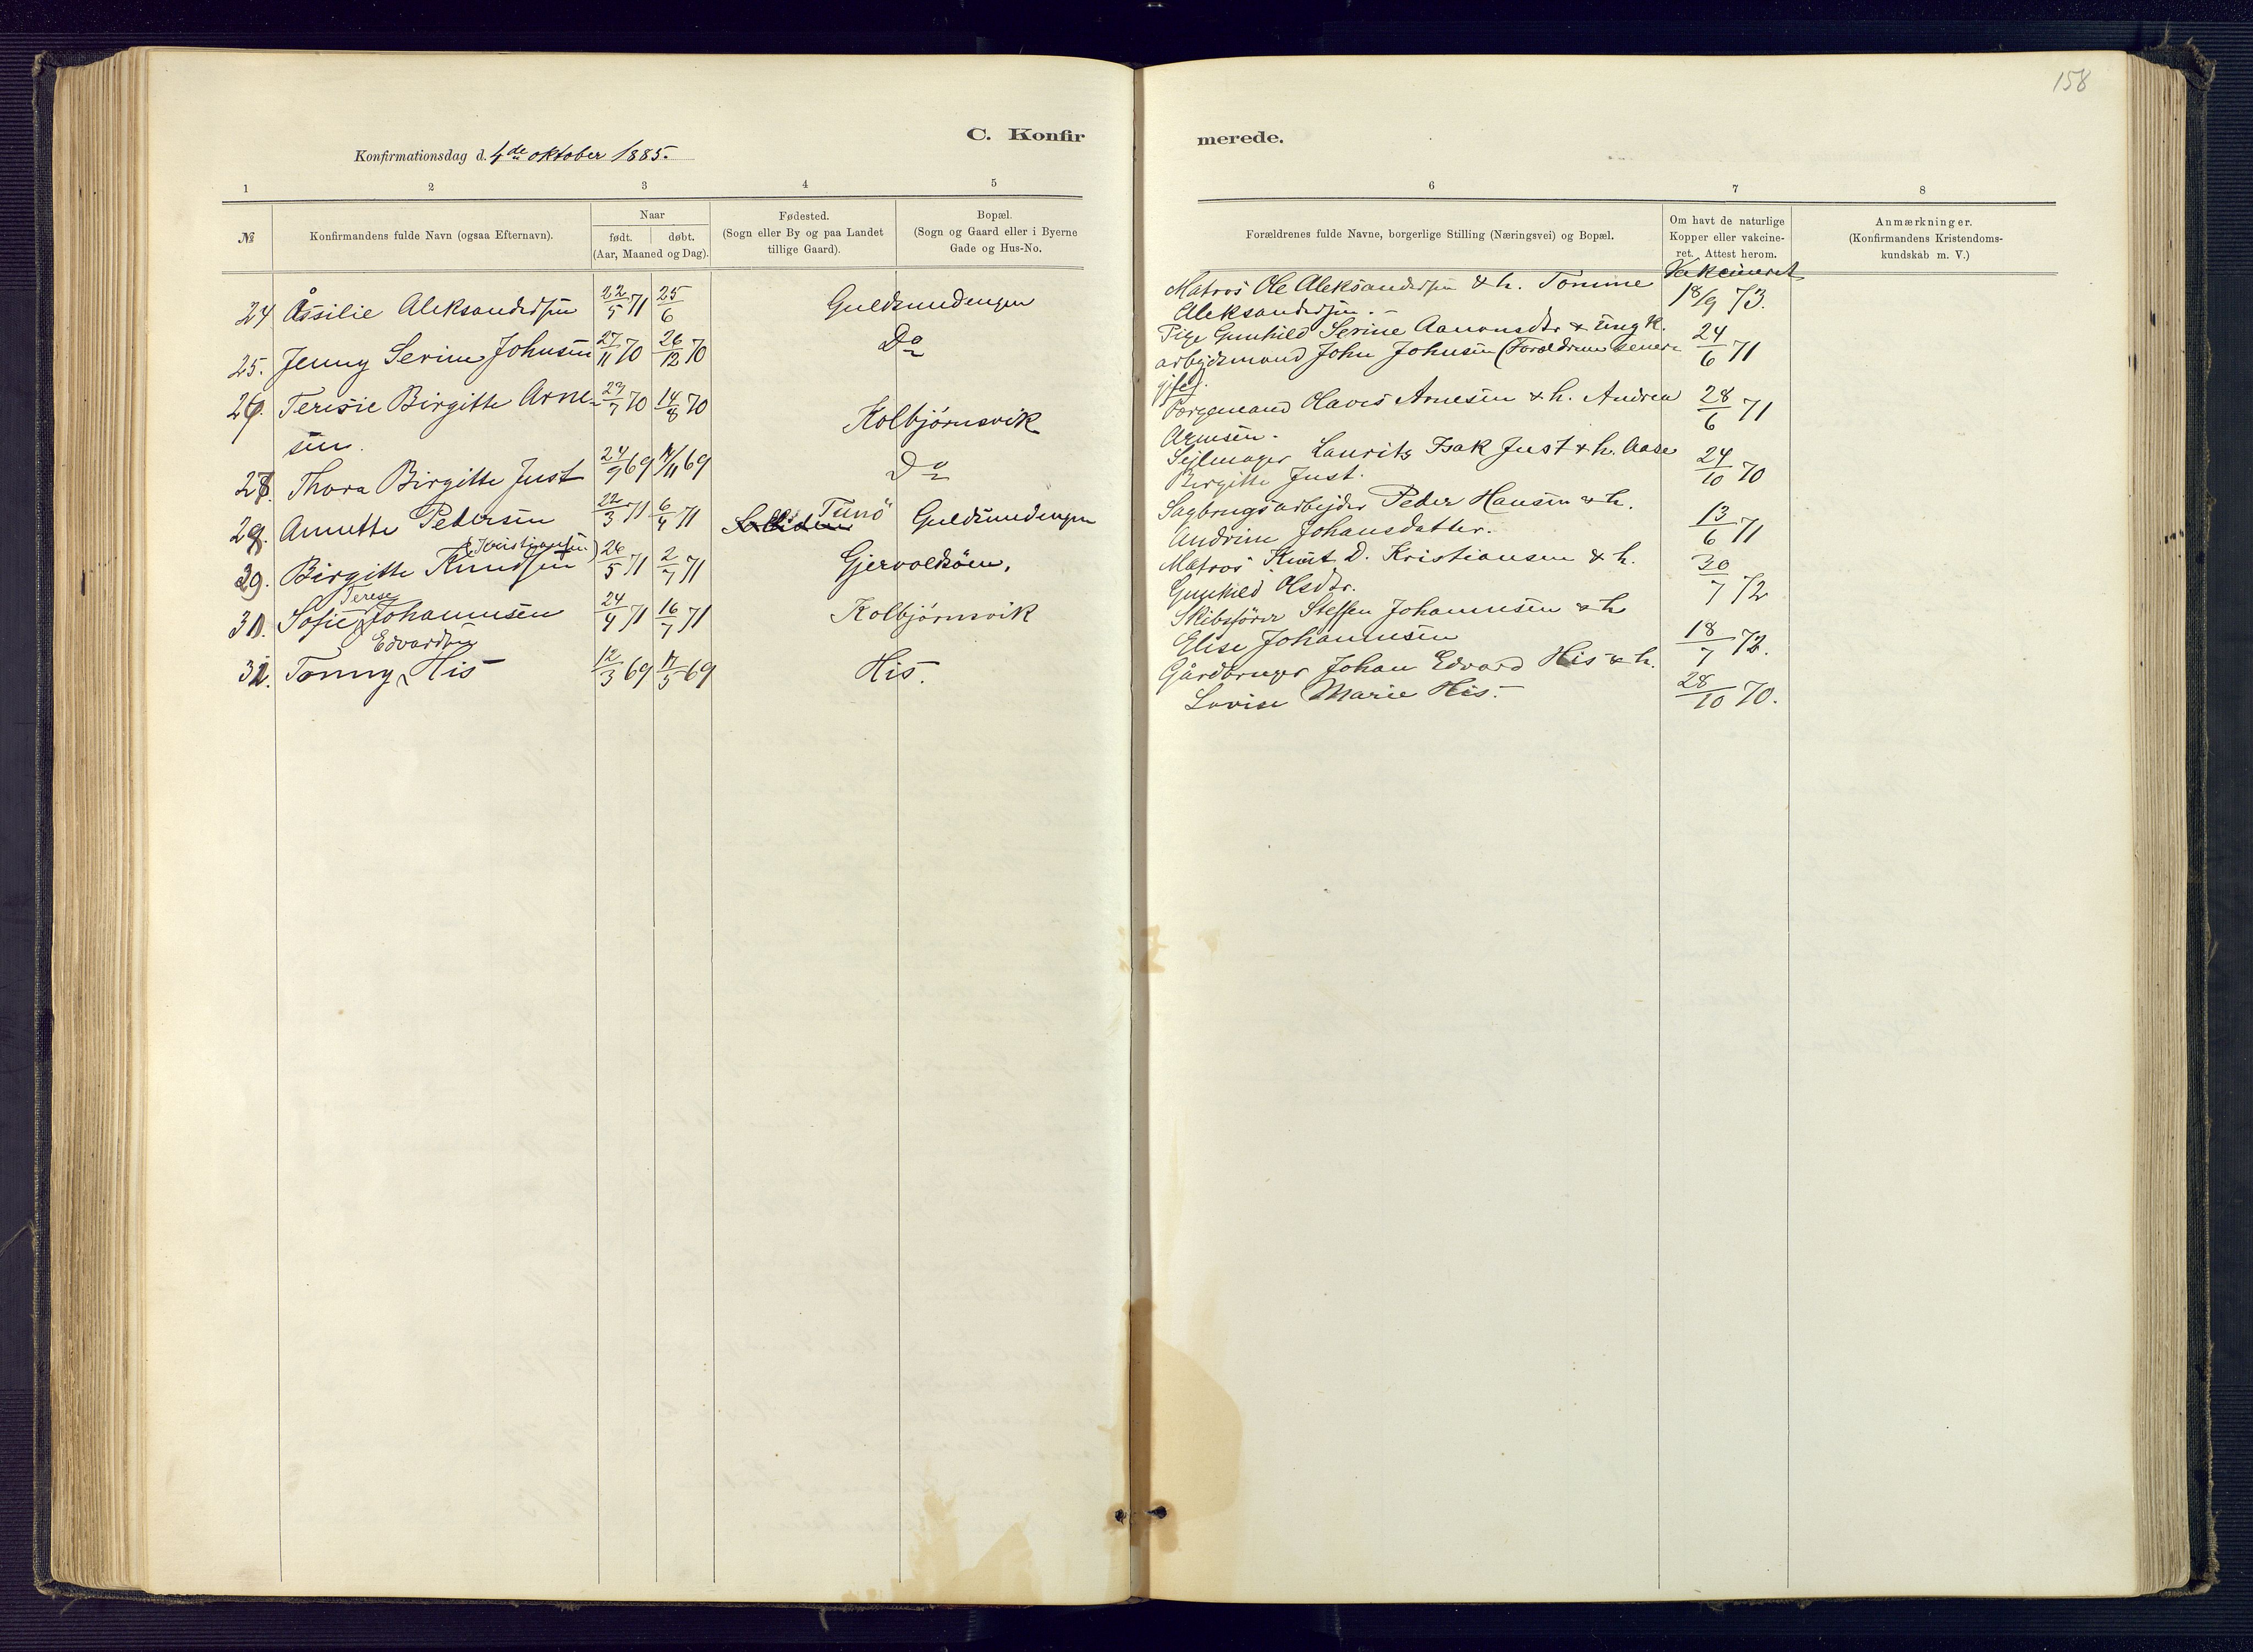 158
C. Konfir
merede.
Konfirmationsdag d. 4de oktober 1885.
1 2 3 4 5
6 7 8
№
Konfirmandens fulde Navn (ogsaa Efternavn).
Naar
født. døbt.
(Aar, Maaned og Dag).
Fødested.
(Sogn eller By og paa Landet
tillige Gaard).
Bopæl.
(Sogn og Gaard eller i Byerne
Gade og Hus-No.
Forældrenes fulde Navne, borgerlige Stilling (Næringsvei) og Bopæl.
Om havt de naturlige
Kopper eller vakcine-
ret. Attest herom.
Anmærkninger.
(Konfirmandens Kristendoms-
kundskab m. V.)
Vakcineret
24 Åssilie Aleksandersen 22/5 71 25/6 Guldsmedengen
Matros Ole Aleksandersen & h. Tomine 18/9 73.
Aleksandersen.
25. Jenny Serine Johnsen 27/11 70 26/12 70 Do
Pige Gunhild Serine Aanonsdtr & ungk. 24/6 71
arbejdsmand John Johnsen (Forældrene senere
gift).
26. Teresie Birgitte Arne- 23/7 70 14/8 70 Kolbjørnsvik
sen.
Færgemand Olaves Arnesen & h. Andrea 28/6 71
Arnesen.
27. Thora Birgitte Just 24/9 69 14/11 69 Do
Sejlmager Laurits Isak Just & h. Aase 24/10 70
Birgitte Just.
28. Annette Petersen 22/3 71 6/4 71 Tunö Guldsmedengen
Sagbrugsarbejder Peder Hansen & h. 13/6 71
Andrine Johansdatter.
(Kristiansen)
29. Birgitte Knudsen 26/5 71 2/7 71 Gjervoldsöen.
Matros Knut D. Kristiansen & h. 30/7 72
Gunhild Olsdtr.
Terese
30. Sofie Johannesen 24/4 71 16/7 71 Kolbjörnsvik
Skibsfører Steffen Johannesen & h 18/7 72.
Elise Johannesen
Edvardsen
31. Tonny His 12/3 69 17/5 69 His.
Gårdbruger Johan Edvard His & h. 28/10 70.
Lovise Marie His.